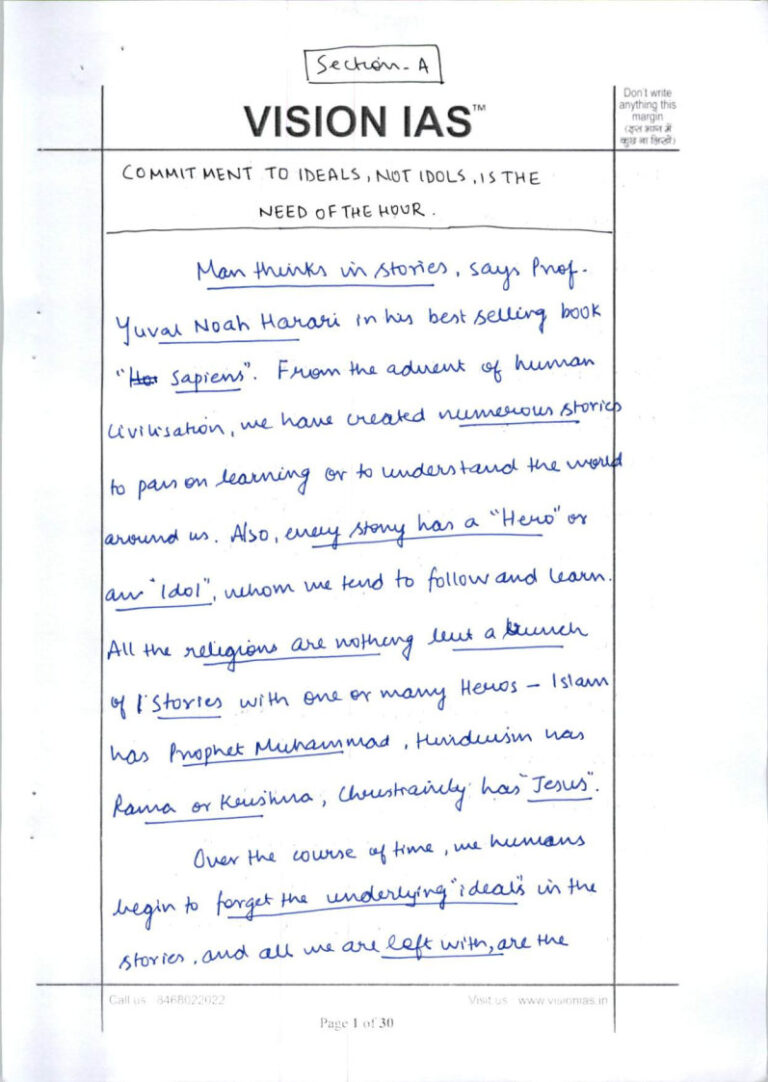 Section-A
VISION IAS™
Don't write
anything this
margin
(इस भाग में
कुछ ना लिखें)
COMMITMENT TO IDEALS, NOT IDOLS, IS THE
NEED OF THE HOUR.
Man thinks in stories, says Prof.
Yuval Noah Harari in his best selling book
"Sapiens". From the advent of human
civilisation, we have created numerous stories
to pass on learning or to understand the world
around us. Also, every story has a "Hero" or
an "Idol", whom we tend to follow and learn.
All the religions are nothing but a bunch
of Stories with one or many Heros - Islam
has Prophet Muhammad, Hinduism has
Rama or Krishna, Christrainity has "Jesus".
Over the course of time, we humans
begin to forget the underlying "ideals" in the
stories, and all we are left with, are the
Call us : 8468022022
Visit us : www.visionias.in
Page 1 of 30